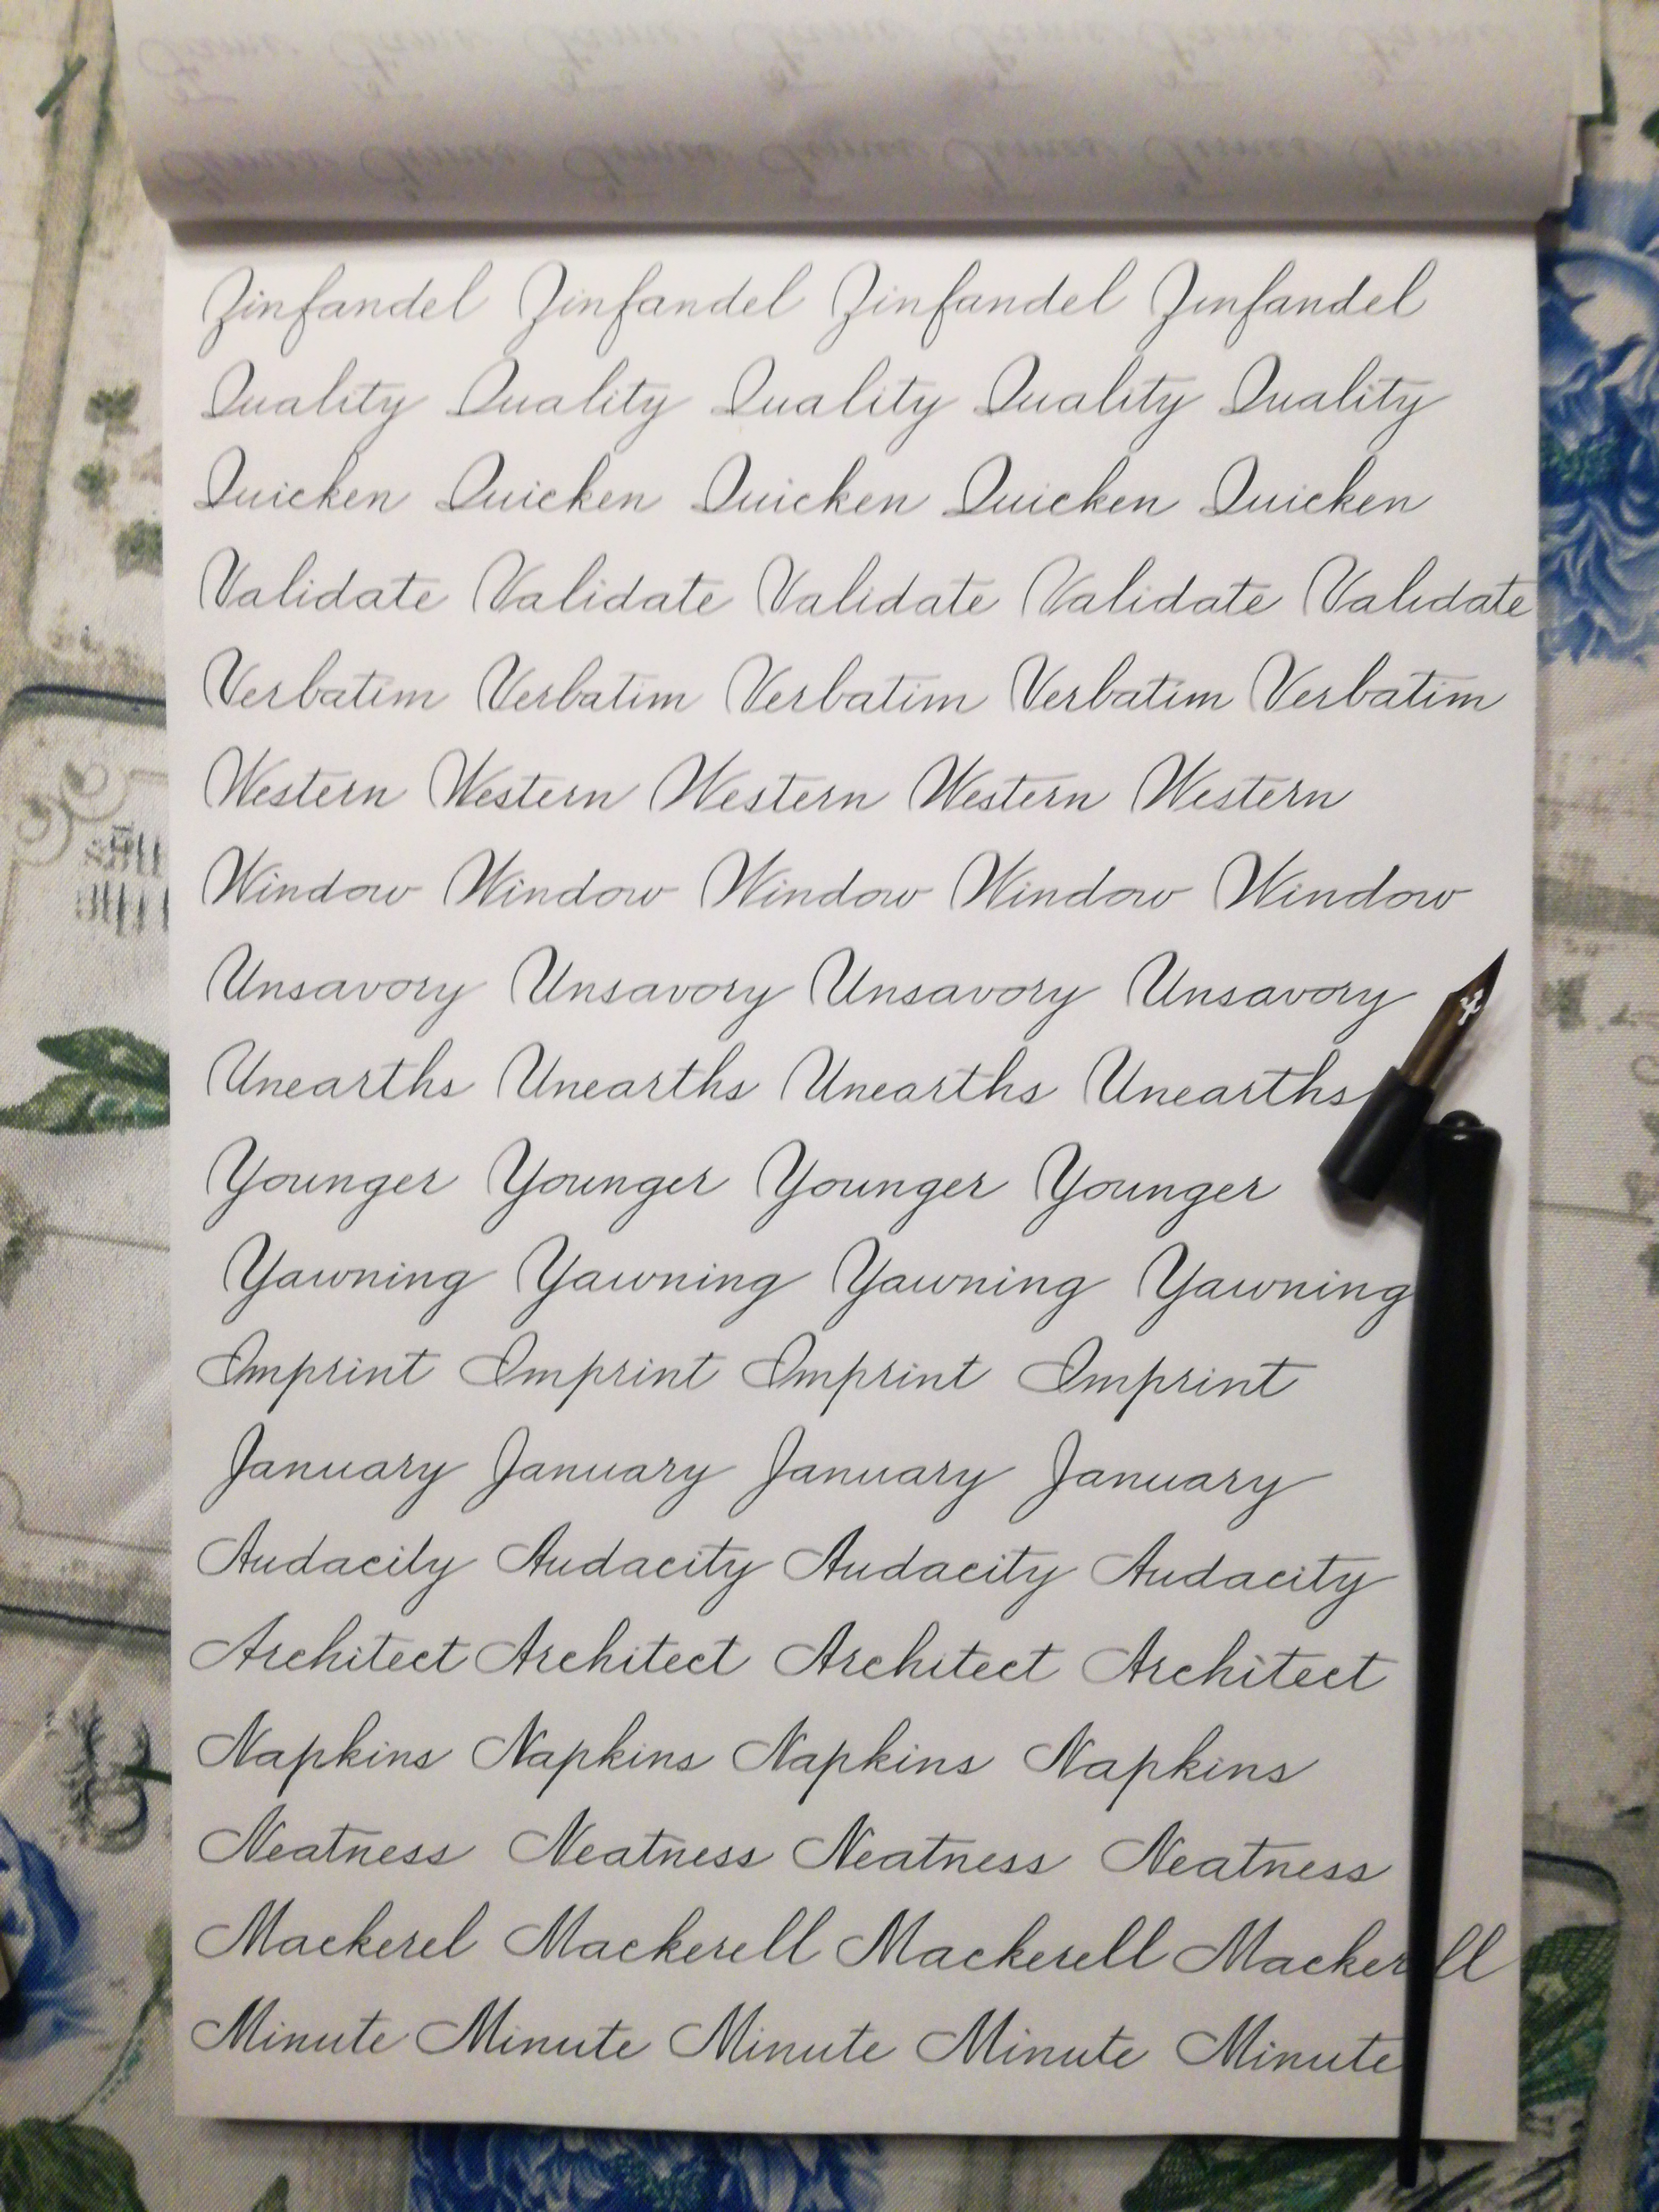 Zinfandel Zinfandel Zinfandel Zinfandel
Quality Quality Quality Quality Quality
Quicken Quicken Quicken Quicken Quicken
Validate Validate Validate Validate Validate
Verbatim Verbatim Verbatim Verbatim Verbatim
Western Western Western Western Western
Window Window Window Window Window
Unsavory Unsavory Unsavory Unsavory
Unearths Unearths Unearths Unearths
Younger Younger Younger Younger
Yawning Yawning Yawning Yawning
Imprint Imprint Imprint Imprint
January January January January
Audacity Audacity Audacity Audacity
Architect Architect Architect Architect
Napkins Napkins Napkins Napkins
Neatness Neatness Neatness Neatness
Mackerel Mackerell Mackerell Mackerell
Minute Minute Minute Minute Minute